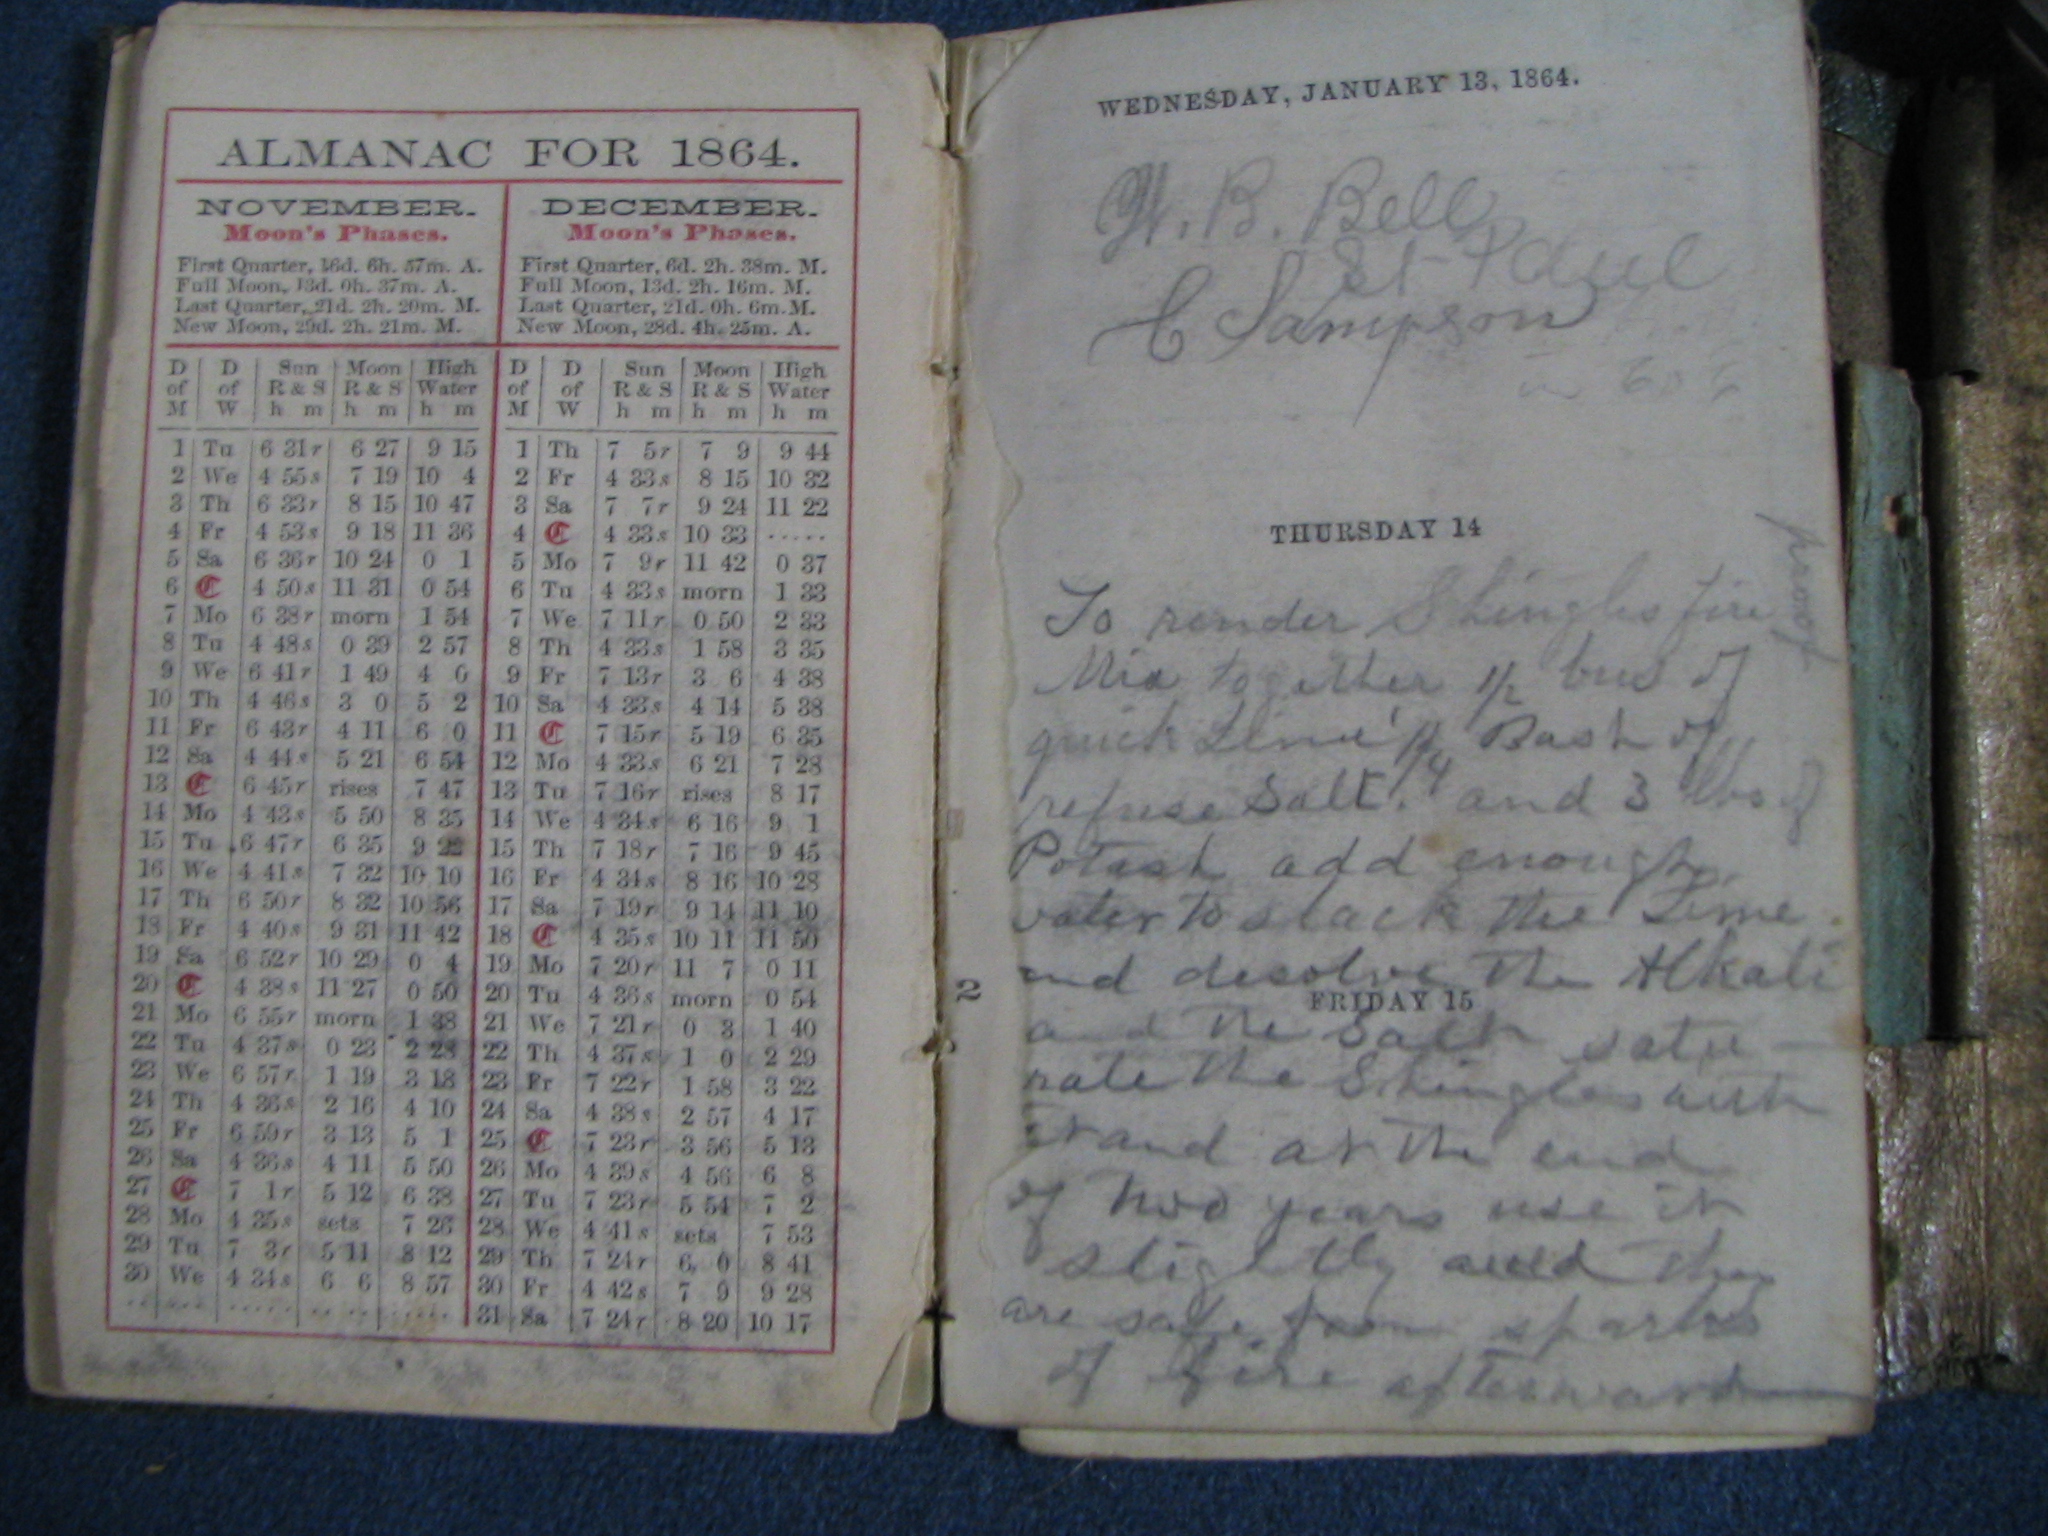 ALMANAC FOR 1864.
NOVEMBER.
Moon's Phases.
First Quarter, 16d. 6h. 57m. A.
Full Moon, 13d. 0h. 37m. A.
Last Quarter, 21d. 2h. 20m. M.
New Moon, 29d. 2h. 21m. M.
D of M | D of W | Sun R & S h m | Moon R & S h m | High Water h m
1 Tu 6 31r 6 27 9 15
2 We 4 55s 7 19 10 4
3 Th 6 33r 8 15 10 47
4 Fr 4 53s 9 18 11 36
5 Sa 6 36r 10 24 0 1
6 C 4 50s 11 31 0 54
7 Mo 6 38r morn 1 54
8 Tu 4 48s 0 39 2 57
9 We 6 41r 1 49 4 0
10 Th 4 46s 3 0 5 2
11 Fr 6 43r 4 11 6 0
12 Sa 4 44s 5 21 6 54
13 C 6 45r rises 7 47
14 Mo 4 43s 5 50 8 35
15 Tu 6 47r 6 35 9 22
16 We 4 41s 7 32 10 10
17 Th 6 50r 8 32 10 56
18 Fr 4 40s 9 31 11 42
19 Sa 6 52r 10 29 0 4
20 C 4 38s 11 27 0 50
21 Mo 6 55r morn 1 38
22 Tu 4 37s 0 23 2 28
23 We 6 57r 1 19 3 18
24 Th 4 36s 2 16 4 10
25 Fr 6 59r 3 13 5 1
26 Sa 4 36s 4 11 5 50
27 C 7 1r 5 12 6 38
28 Mo 4 35s sets 7 26
29 Tu 7 3r 5 11 8 12
30 We 4 34s 6 6 8 57
DECEMBER.
Moon's Phases.
First Quarter, 6d. 2h. 38m. M.
Full Moon, 13d. 2h. 16m. M.
Last Quarter, 21d. 0h. 6m. M.
New Moon, 28d. 4h. 25m. A.
D of M | D of W | Sun R & S h m | Moon R & S h m | High Water h m
1 Th 7 5r 7 9 9 44
2 Fr 4 33s 8 15 10 32
3 Sa 7 7r 9 24 11 22
4 C 4 33s 10 33 .....
5 Mo 7 9r 11 42 0 37
6 Tu 4 33s morn 1 33
7 We 7 11r 0 50 2 33
8 Th 4 33s 1 58 3 35
9 Fr 7 13r 3 6 4 38
10 Sa 4 33s 4 14 5 38
11 C 7 15r 5 19 6 35
12 Mo 4 33s 6 21 7 28
13 Tu 7 16r rises 8 17
14 We 4 34s 6 16 9 1
15 Th 7 18r 7 16 9 45
16 Fr 4 34s 8 16 10 28
17 Sa 7 19r 9 14 11 10
18 C 4 35s 10 11 11 50
19 Mo 7 20r 11 7 0 11
20 Tu 4 36s morn 0 54
21 We 7 21r 0 3 1 40
22 Th 4 37s 1 0 2 29
23 Fr 7 22r 1 58 3 22
24 Sa 4 38s 2 57 4 17
25 C 7 23r 3 56 5 13
26 Mo 4 39s 4 56 6 8
27 Tu 7 23r 5 54 7 2
28 We 4 41s sets 7 53
29 Th 7 24r 6 0 8 41
30 Fr 4 42s 7 9 9 28
31 Sa 7 24r 8 20 10 17
WEDNESDAY, JANUARY 13, 1864.
W. B. Bell
St Paul
C Sampson
THURSDAY 14
To render Shingles fire proof
Mix together 1/2 bus of
quick Lime Bush of
refuse Salt. 1/4 and 3 lbs of
Potash add enough
water to slack the Lime.
and desolve the Alkali
FRIDAY 15
and the Salt satu-
rate the Shingles with
it and at the end
of two years use it
slightly and they
are safe from sparks
of fire afterward
2